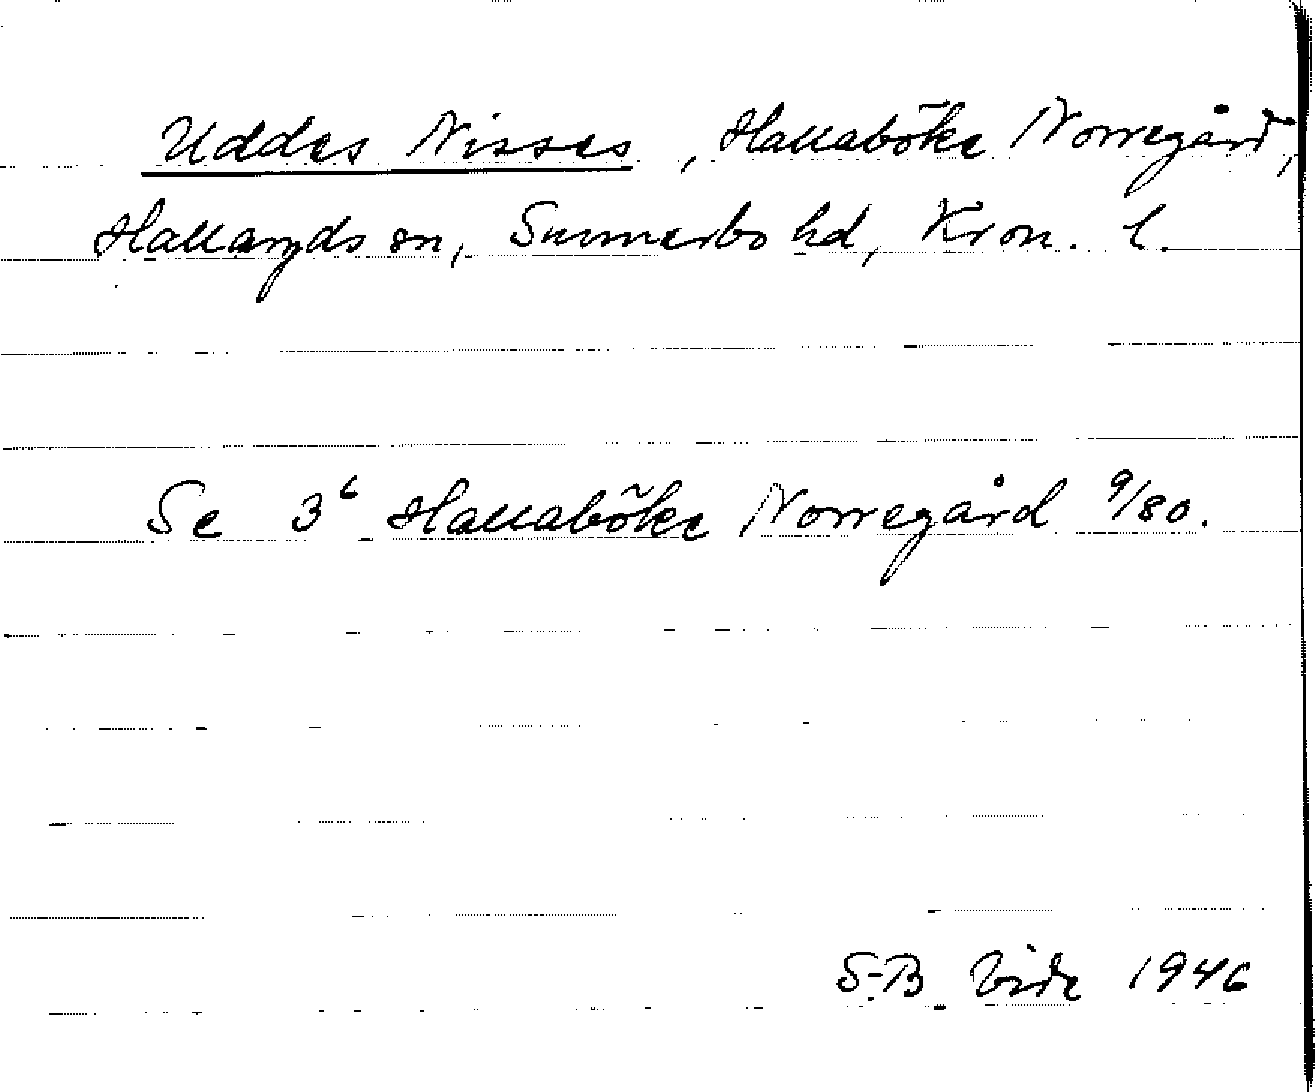 Uddes Nisses, Hallaböke Norregård,
Hallaryds sn, Sunnerbo hd, Kron. l.
Se 3⁶ Hallaböke Norregård 9/80.
S-B Vide 1946